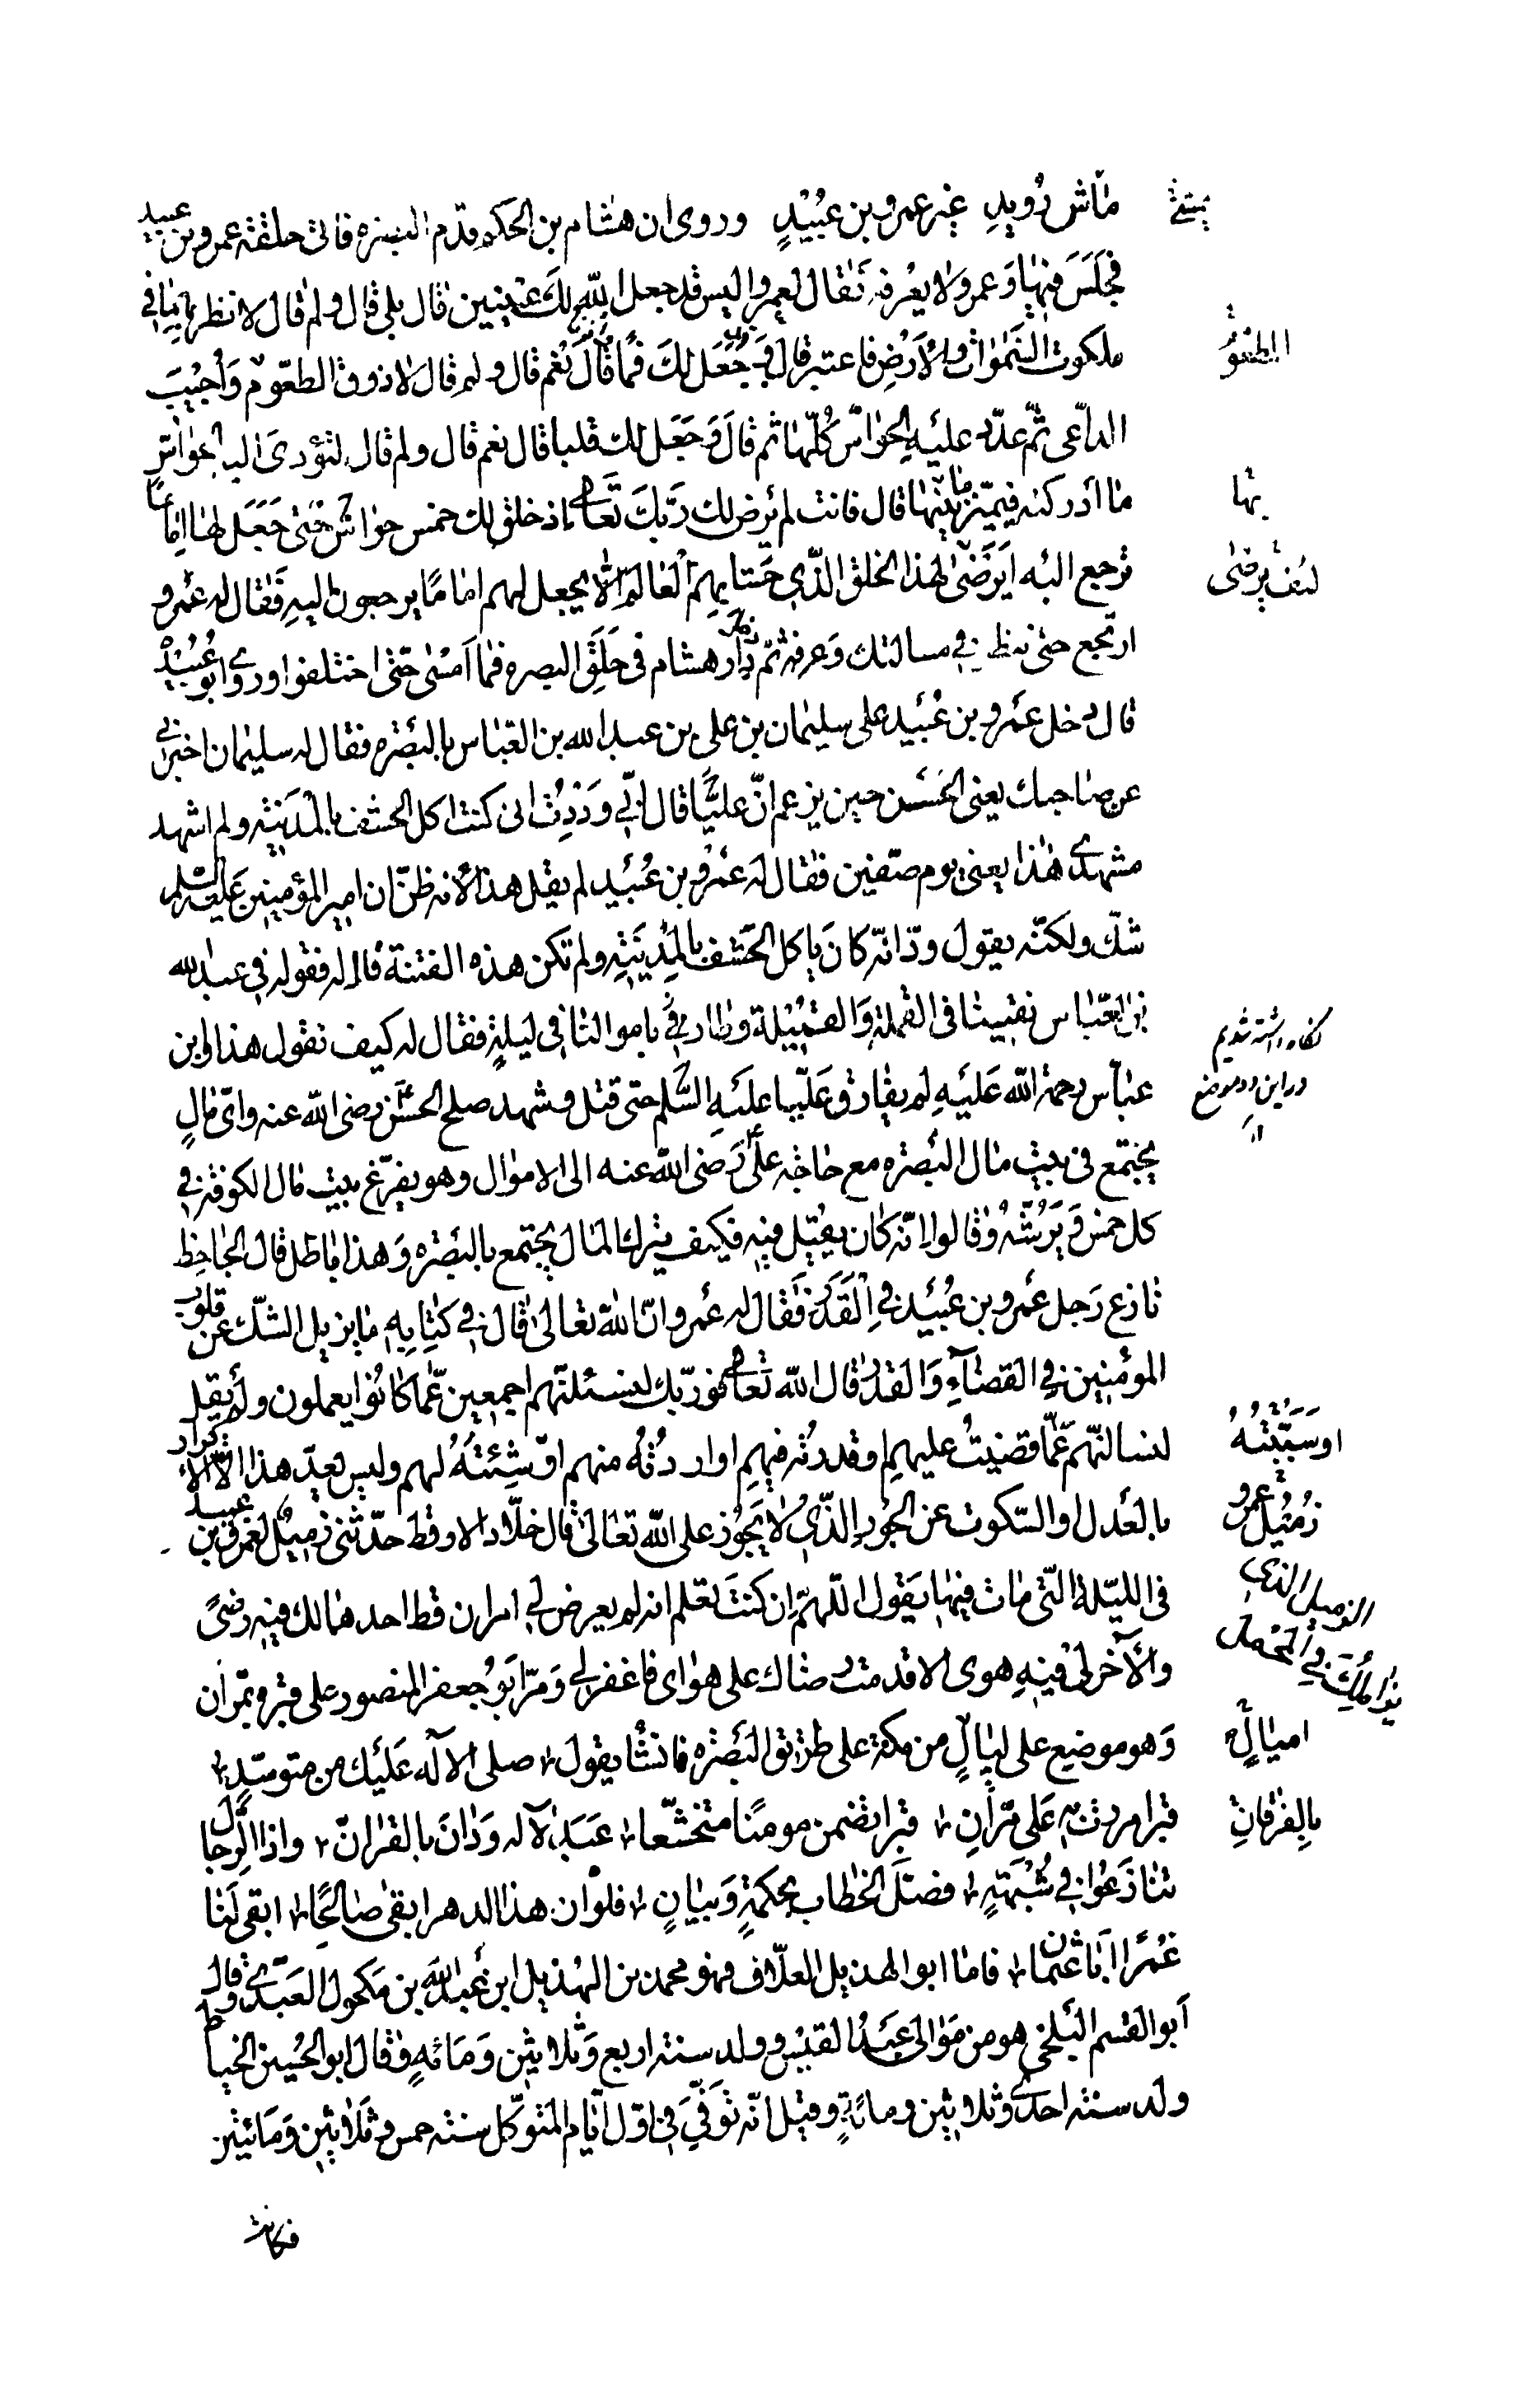 ماش رويد غير عمرو بن عبيد وروى ان هشام بن الحكم قدم البصره فاتى حلقة عمرو بن عبيد
يمشى
فجلس فيها وعمرو لا يعرفه فقال لعمرو اليس قد جعل الله لك عينين قال بلى قال ولم قال لانظر بهما في
ملكوت السموات والارض فاعتبر قال وجعل لك فما قال نعم قال ولم قال لاذوق الطعوم واجيب
الطعوم
الداعى ثم عدد عليه الحواس كلها ثم قال وجعل لك قلبا قال نعم قال ولم قال لتؤدى اليه الحواس
ما ادركته فيميز بينها قال فانت لم يرض لك ربك تعالى اذ خلق لك خمس حواس حتى جعل لها اماما
بها
ترجع اليه ايرضى لهذا الخلق الذي حشا بهم العالم الا يجعل لهم اماما يرجعون اليه فقال له عمرو
كيف يرضى
ارتجع حتى ننظر في مسالتك وعرفه ثم دار هشام في حلق البصره فما امسى حتى اختلفوا وروى ابو عبيده
قال دخل عمرو بن عبيد على سليمان بن على بن عبد الله بن العباس بالبصره فقال له سليمان اخبرنى
عن صاحبك يعنى الحسن حين يزعم ان عليا قال انى وددت انى كنت اكل الحشف بالمدينة ولم اشهد
مشهدى هذا يعنى يوم صفين فقال له عمرو بن عبيد لم يقل هذا لانه ظن ان امير المؤمنين عليه السلم
شك ولكنه يقول ود انه كان ياكل الحشف بالمدينة ولم تكن هذه الفتنة قال له فقوله في عبد الله
بن العباس يفتينا في القملة والقميلة وطار باموالنا في ليلة فقال له كيف يقول هذا وابن
نگاه داشته شديم
عباس رحمة الله عليه لم يفارق عليا عليه السلم حتى قتل وشهد صلح الحسن رضى الله عنه واى مال
در اين دو موضع
يجتمع في بيت مال البصره مع حاجة على رضى الله عنه الى الاموال وهو يفرغ بيت مال الكوفة في
كل خمس ويرشه وقالوا انه كان يقيل فيه فكيف يترك المال يجتمع بالبصره وهذا باطل قال الجاحظ
نازع رجل عمرو بن عبيد في القدر فقال له عمرو ان الله تعالى قال في كتابه ما يزيل الشك عن قلوب
المؤمنين في القضاء والقدر قال الله تعالى فوربك لنسئلنهم اجمعين عما كانوا يعملون ولم يقل
لنسالنهم عما قضيت عليهم او قدرته فيهم او اردته منهم او شئته لهم وليس بعد هذا الا الاقرار
او سببته
بالعدل والسكوت عن الجور الذي لا يجوز على الله تعالى قال خلاد الارقط حدثنى زميل لعمرو بن عبيد
زميل عمرو
في الليلة التى مات فيها يقول اللهم ان كنت تعلم انه لم يعرض لى امران قط احدهما لك فيه رضى
الزميل الذي
والآخر لى فيه هوى الا قدمت رضاك على هواى فاغفر لى ومر ابو جعفر المنصور على قبره بمران
يزاملك في المحمل
وهو موضع على ليال من مكة على طريق البصره فانشا يقول صلى الاله عليك من متوسد
اميال
قبرا مررت به على مران قبرا تضمن مومنا متخشعا عبد الاله ودان بالقران واذا الرجال
بالفرقان
تنازعوا في شبهة فصل الخطاب بحكمة وبيان فلو ان هذا الدهر ابقى صالحا ابقى لنا
عمرا ابا عثمان فاما ابو الهذيل العلاف فهو محمد بن الهذيل ابن عبد الله بن مكحول العبدى وقال
ابو القسم البلخى هو من موالى عبد القيس وولد سنة اربع وثلاثين ومائة وقال ابو الحسين الخياط
ولد سنة احدى وثلاثين ومائة وقيل انه توفى في اول ايام المتوكل سنة خمس وثلاثين ومائتين
فكانت